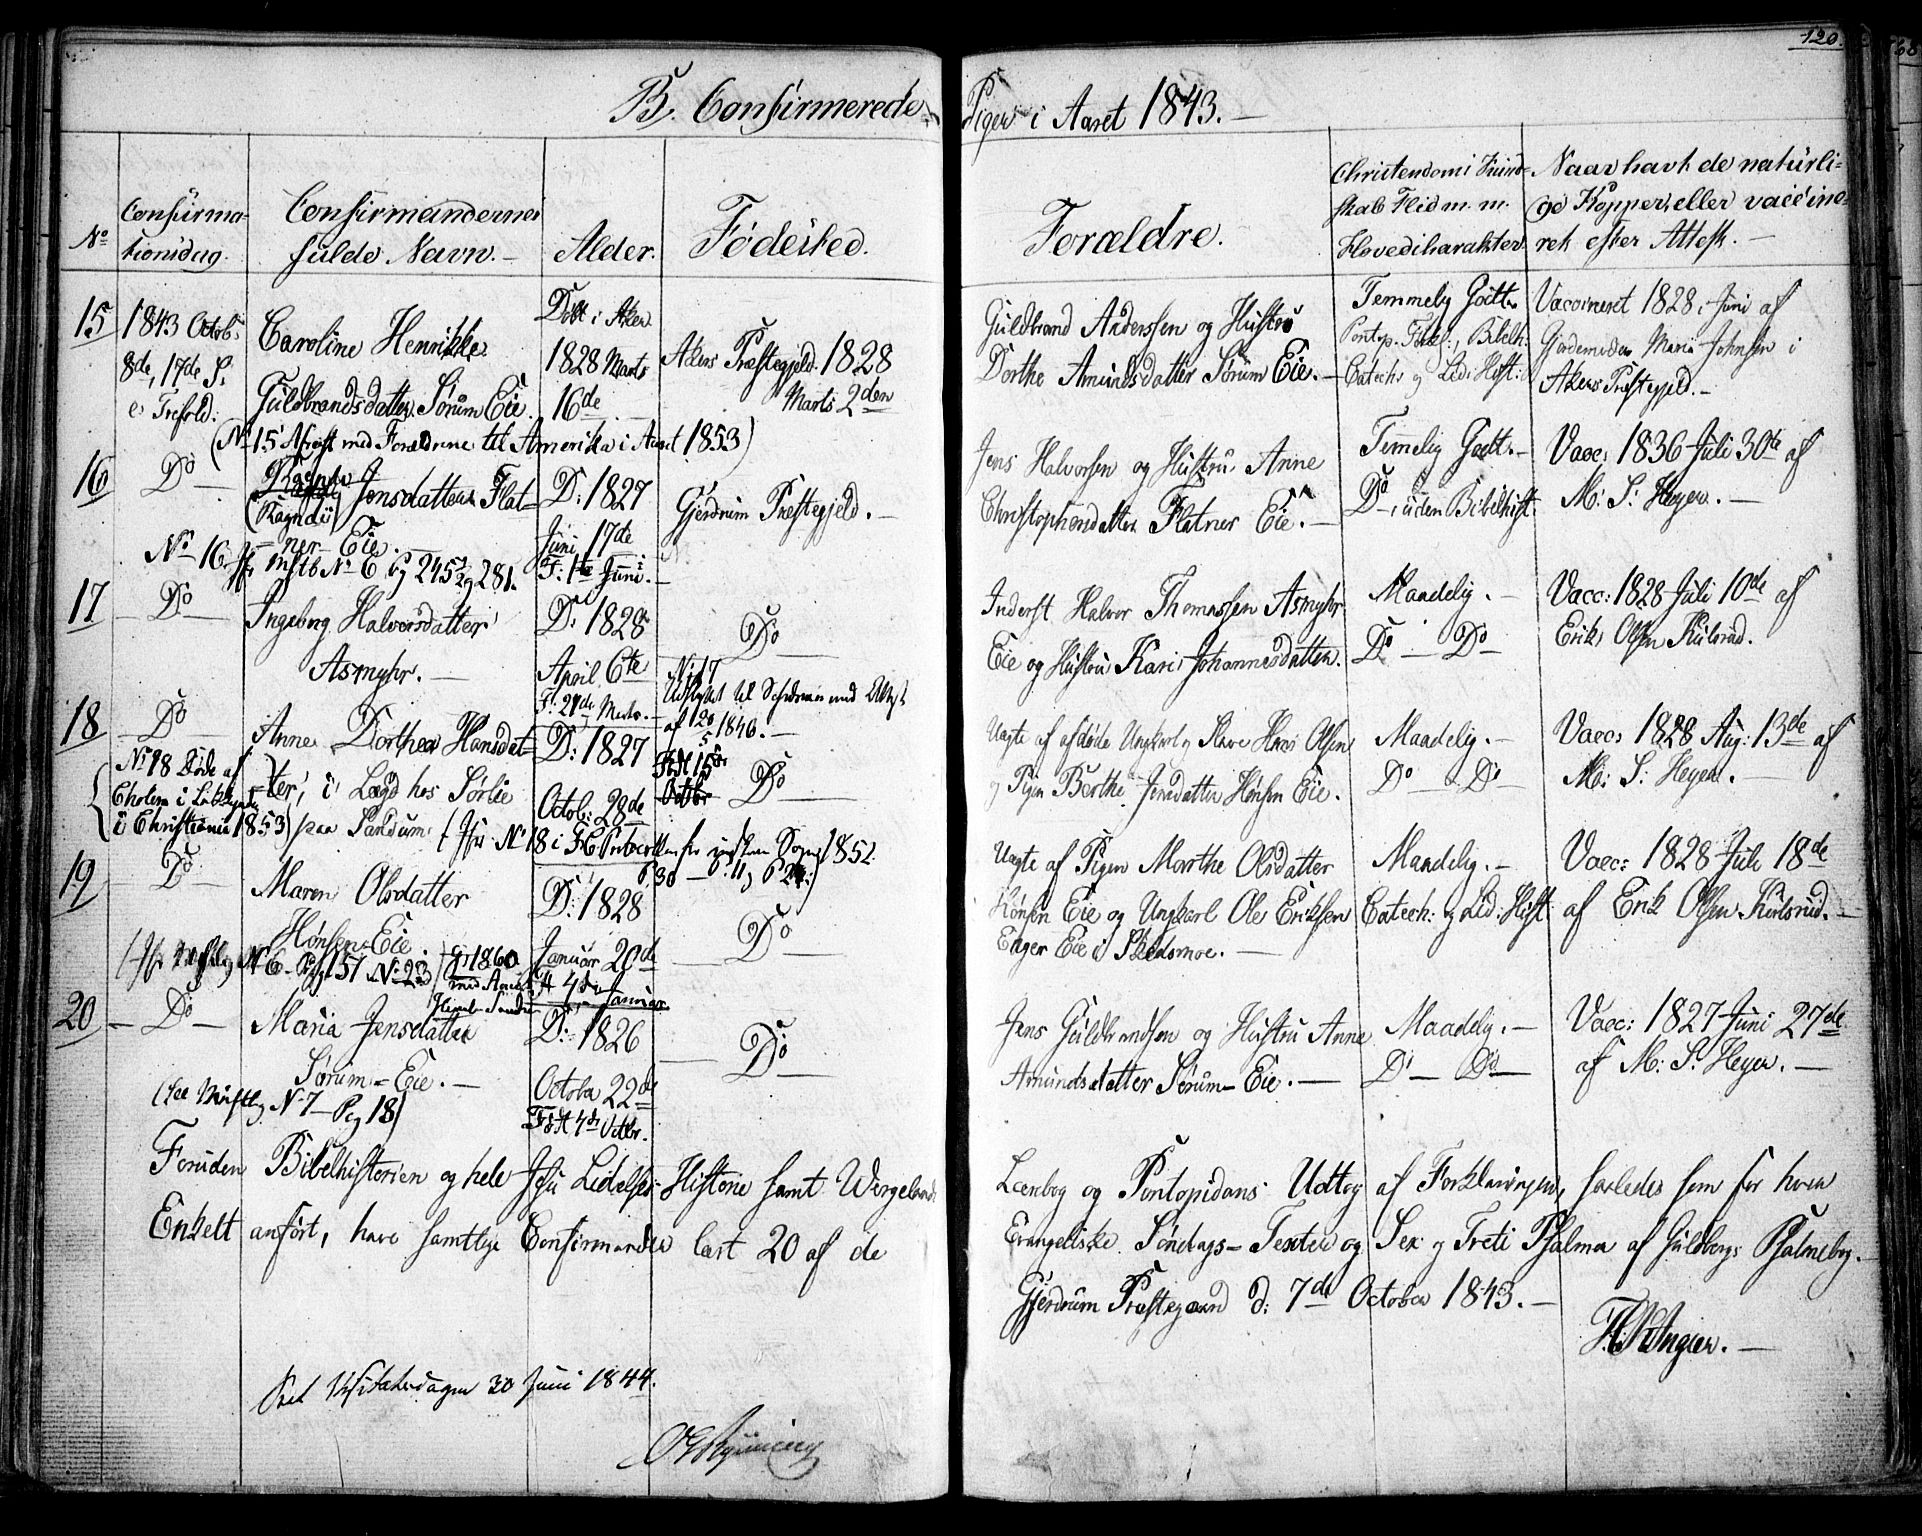 120.
B. Confirmerede Piger i Aaret 1843.
No
Confirma-
tionsdag.
Confirmandernes
fulde Navn.
Alder.
Fødested.
Forældre.
Christendoms Kund-
skab Flid m. m.
Hovedcharakter
Naar havt de naturli-
ge Kopper, eller vaccine-
ret efter Attest.
15
1843 Octob:
8de, 17de S.
e. Trefold:
Caroline Henrikke
Guldbrandsdatter Sørum Eie.
Døbt i Aker
1828 Marts
16de
Akers Præstegjeld. 1828
Marts 2den
Guldbrand Anderssen og Hustru
Dorthe Amundsdatter Sørum Eie.
Temmelig Godt
Pontop. Forkl:, Bibelh:
Catech: og Lid: Hist:
Vaccineret 1828 i Juni af
Gjordemoder Maria Johnsen i
Akers Præstegjeld.
(No 15 Afreist med Forældrene til Amerika i Aaret 1853)
16
Do
Ragnde
(Ragndi) Jensdatter Flat-
ner Eie.
D: 1827
Juni 17de
F: 1te Juni.
Gjerdrum Præstegjeld.
Jens Halvorsen og Hustru Anne
Christophersdatter Flatner Eie.
Temmelig Godt.
Do, uden Bibelhist.
Vacc: 1836 Juli 30te af
M: S: Heyer.
No 16. Jfr Mstb No 6 Pg 245 og 281.
17
Do
Ingeborg Halvorsdatter
Asmyhr.
D: 1828
April 6te
F. 21de Marts.
Do
No 17
Udflyttet til Sørum med Attest
af 20/5 1846.
Inderst Halvor Thomassen Asmyhr
Eie og Hustru Kari Johannesdatter.
Maadelig.
Do Do
Vacc: 1828 Juli 10de af
Erik Olsen Kulsrud.
18
Do
Anne Dorthea Hansdat-
ter, i Lægd hos Sørlie
paa Sandum
D: 1827
Octob: 28de
Født 15de
Octbr
Do
Uægte af afdøde Ungkarl og Slave Hans Olsen
og Pigen Berthe Jensdatter Hønsen Eie.
Maadelig.
Do Do
Vacc: 1828 Aug: 13de af
M: S: Heyer.
No 18 Døde af
Cholera i
i Christiania 1853)
(Jfr No 18 i Protocollen for 1852.
19
Do
Maren Olsdatter
Hønsen Eie.
D: 1828
Januar 20de
4de Januar
Do
Uægte af Pigen Marthe Olsdatter
Hønsen Eie og Ungkarl Ole Eriksen
Enger Eie i Skedsmoe.
Maadelig.
Catech: og Lid: Hist:
Vacc: 1828 Juli 18de
af Erik Olsen Kulsrud.
No 6 Pag 151 No 23
20
Do
Maria Jensdatter
Sørum-Eie.
D: 1826
October 22de
Født 4de Octbr.
Do
Jens Guldbrandsen og Hustru Anne
Amundsdatter Sørum-Eie.
Maadelig.
Do Do
Vacc: 1827 Juni 27de
af M: S: Heyer.
(See No 7 Pag 18)
Foruden Bibelhistorien og hele Jesu Lidelses Historie samt Wergelands Læsebog og Pontopidans Udtog af Forklaringen, saaledes som for hver
Enkelt anført, have samtlige Confirmander læst 20 af de Evangeliske Søndags-Texter og Sex og Treti Psalmer af Guldbergs Psalmebog.
Gjerdrum Præstegaard d: 7de October 1843.
Seet Visitatsdagen 30 Juni 1844.